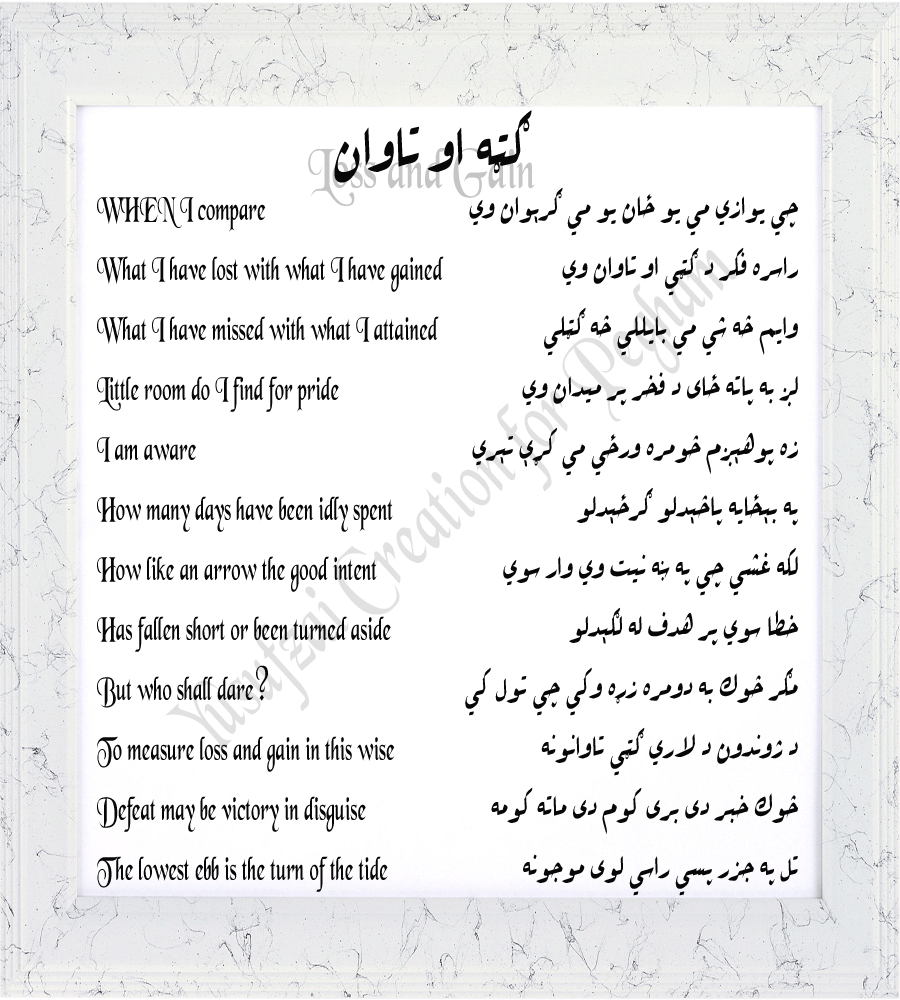 ګټه او تاوان
Loss and Gain
WHEN I compare
چي یوازي مي یو ځان یو مي ګرېوان وي
What I have lost with what I have gained
راسره فکر د ګټي او تاوان وي
What I have missed with what I attained
وایم څه شي مي بایللي څه ګټلي
Little room do I find for pride
لږ به پاته ځای د فخر پر میدان وي
I am aware
زه پوهېږم څومره ورځي مي کړې تېري
How many days have been idly spent
په بېځایه پاڅېدلو ګرځېدلو
How like an arrow the good intent
لکه غشي چي په ښه نیت وي وار سوي
Has fallen short or been turned aside
خطا سوي پر هدف له لګېدلو
But who shall dare?
مګر څوك به دومره زړه وکي چي تول کي
To measure loss and gain in this wise
د ژوندون د لاري ګټي تاوانونه
Defeat may be victory in disguise
څوك خبر دی بری کوم دی ماته کومه
The lowest ebb is the turn of the tide
تل په جزر پسي راسي لوی موجونه
Yusufzai Creation for Pegham